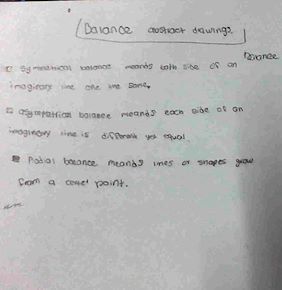 Balance abstract drawings
Balance
Symmetrical balance meands both side of an
imaginary line are the same.
asymmetrical balance meands each side of an
imaginary line is different yet equal.
Radial balance meands lines or shapes grow
from a center point.